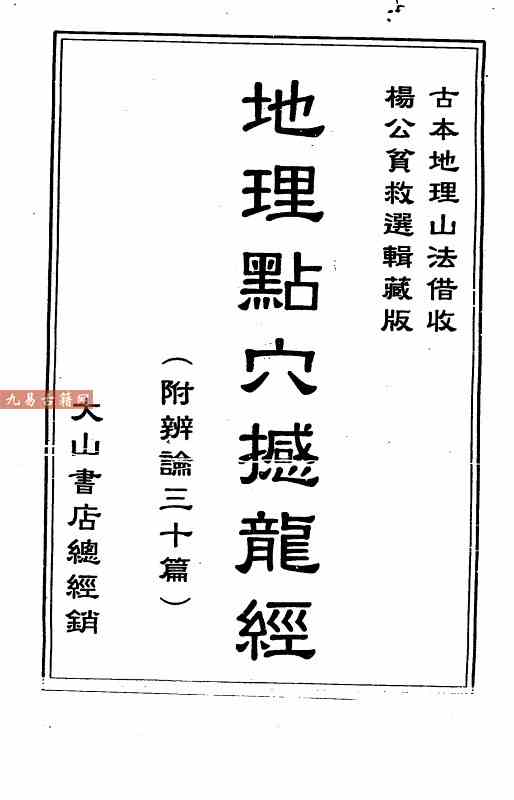 古本地理山法借收
楊公貧救選輯藏版
地理點穴撼龍經
（附辨論三十篇）
大山書店總經銷
九易古籍网